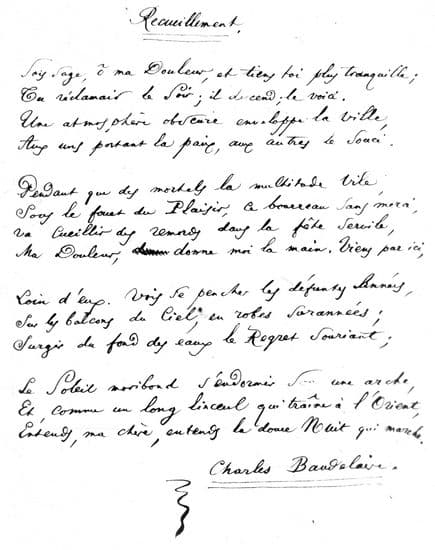 Recueillement.
Sois sage, ô ma Douleur, et tiens toi plus tranquille;
Tu réclamais le Soir; il descend; le voici.
Une atmosphère obscure enveloppe la ville,
Aux uns portant la paix, aux autres le Souci.
Pendant que des mortels la multitude vile,
Sous le fouet du Plaisir, ce bourreau sans merci,
va Cueillir des remords dans la fête servile,
Ma Douleur, donne moi la main. Viens par ici,
Loin d'eux. Vois se pencher les défuntes Années,
Sur les balcons du Ciel, en robes surannées;
Surgir du fond des eaux le Regret Souriant;
Le Soleil moribond s'endormir une arche,
Et comme un long linceul qui traîne à l'Orient,
Entends, ma chère, entends la douce Nuit qui marche.
Charles Baudelaire.